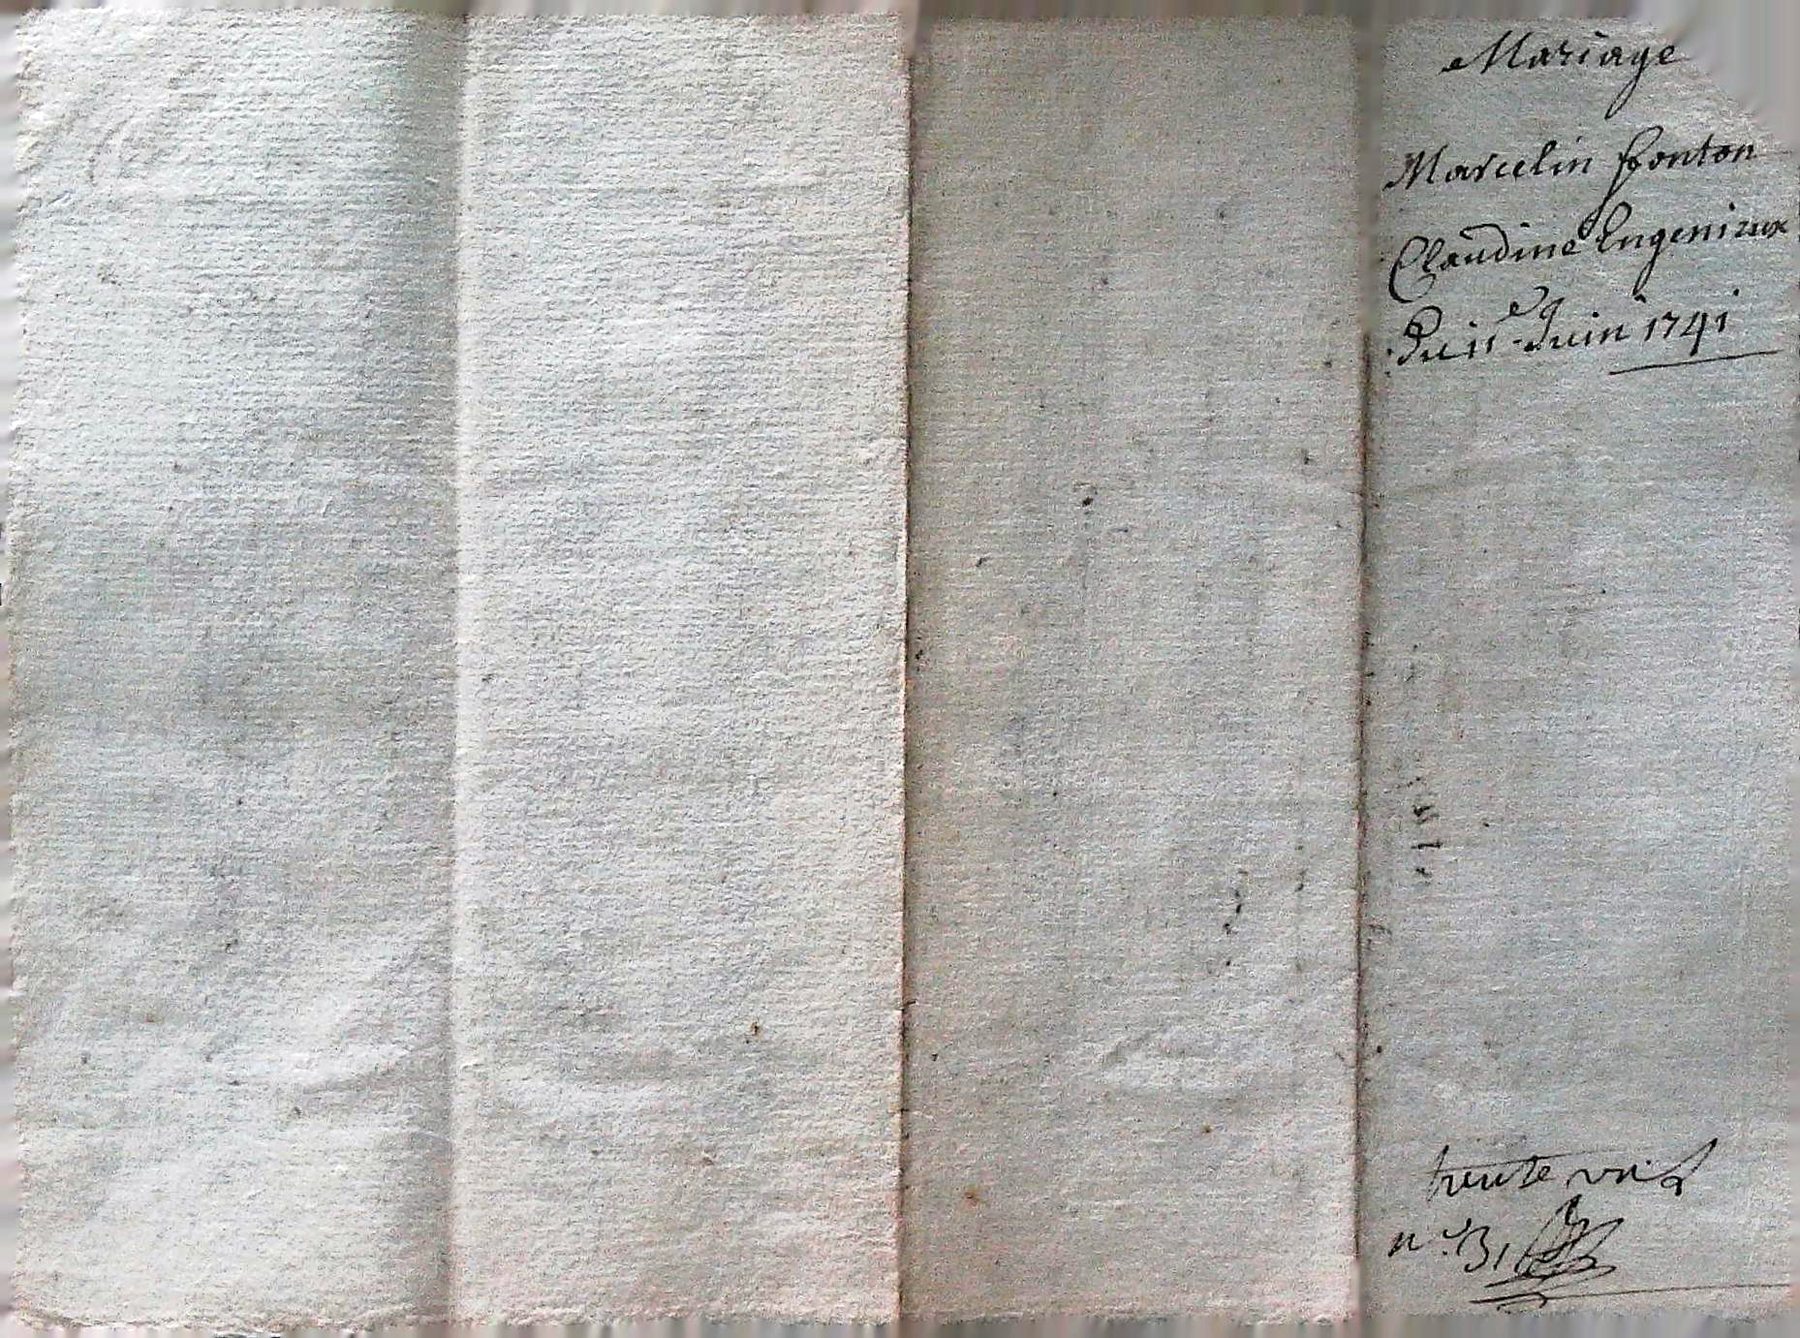 Mariage
Marcelin ffonton
Claudine Engenieux
Du 11e Juin 1741
trente un
n.º 31